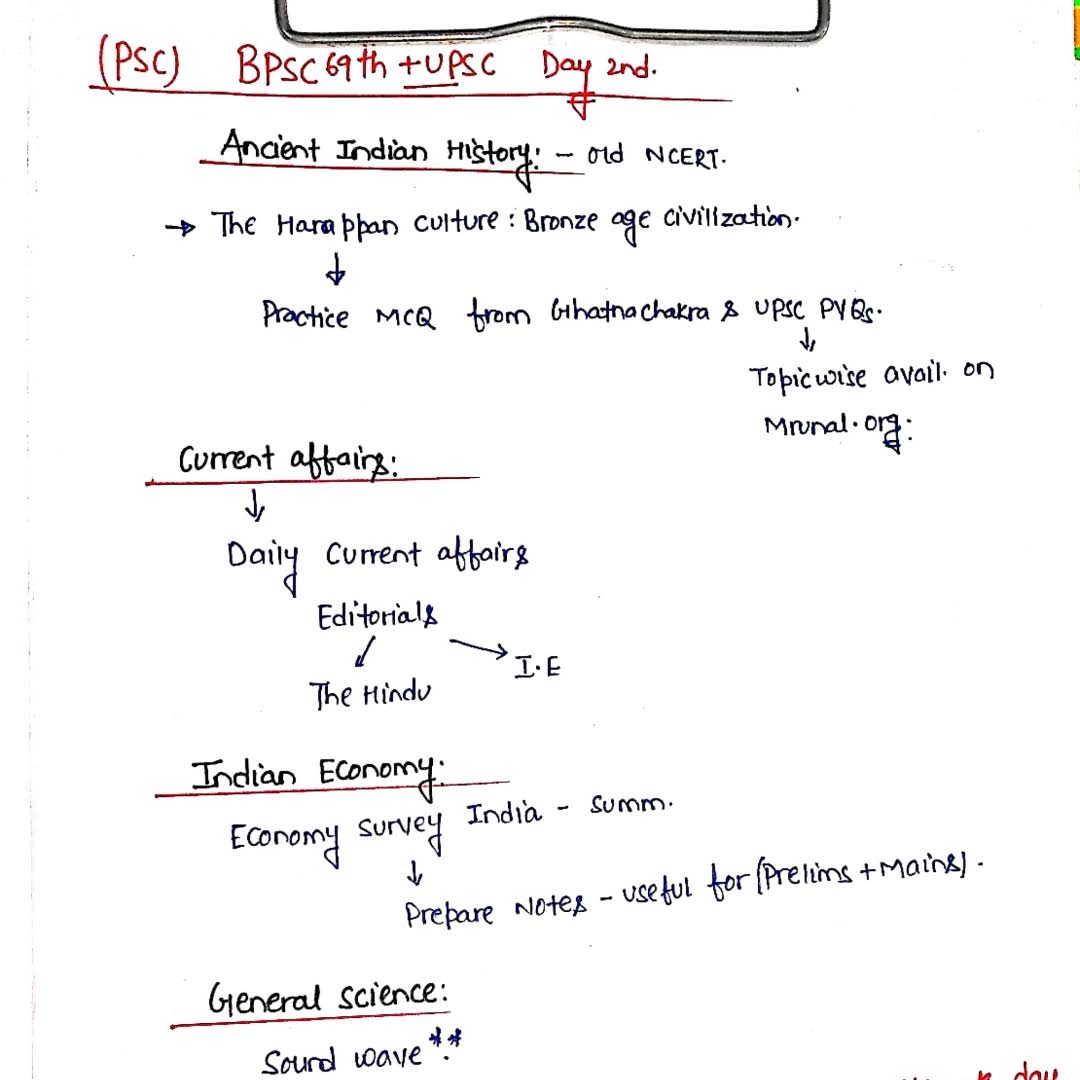 (PSC) BPSC 69th + UPSC Day 2nd.
Ancient Indian History: - old NCERT.
→ The Harappan culture : Bronze age civilization.
↓
Practice MCQ from Ghatnachakra & UPSC PYQs.
↓
Topicwise avail. on
Mrunal.org:
Current affairs:
↓
Daily current affairs
Editorials
↙ → I.E
The Hindu
Indian Economy:
Economy survey India - summ.
↓
Prepare Notes - useful for (Prelims + Mains).
General science:
Sound wave **
day